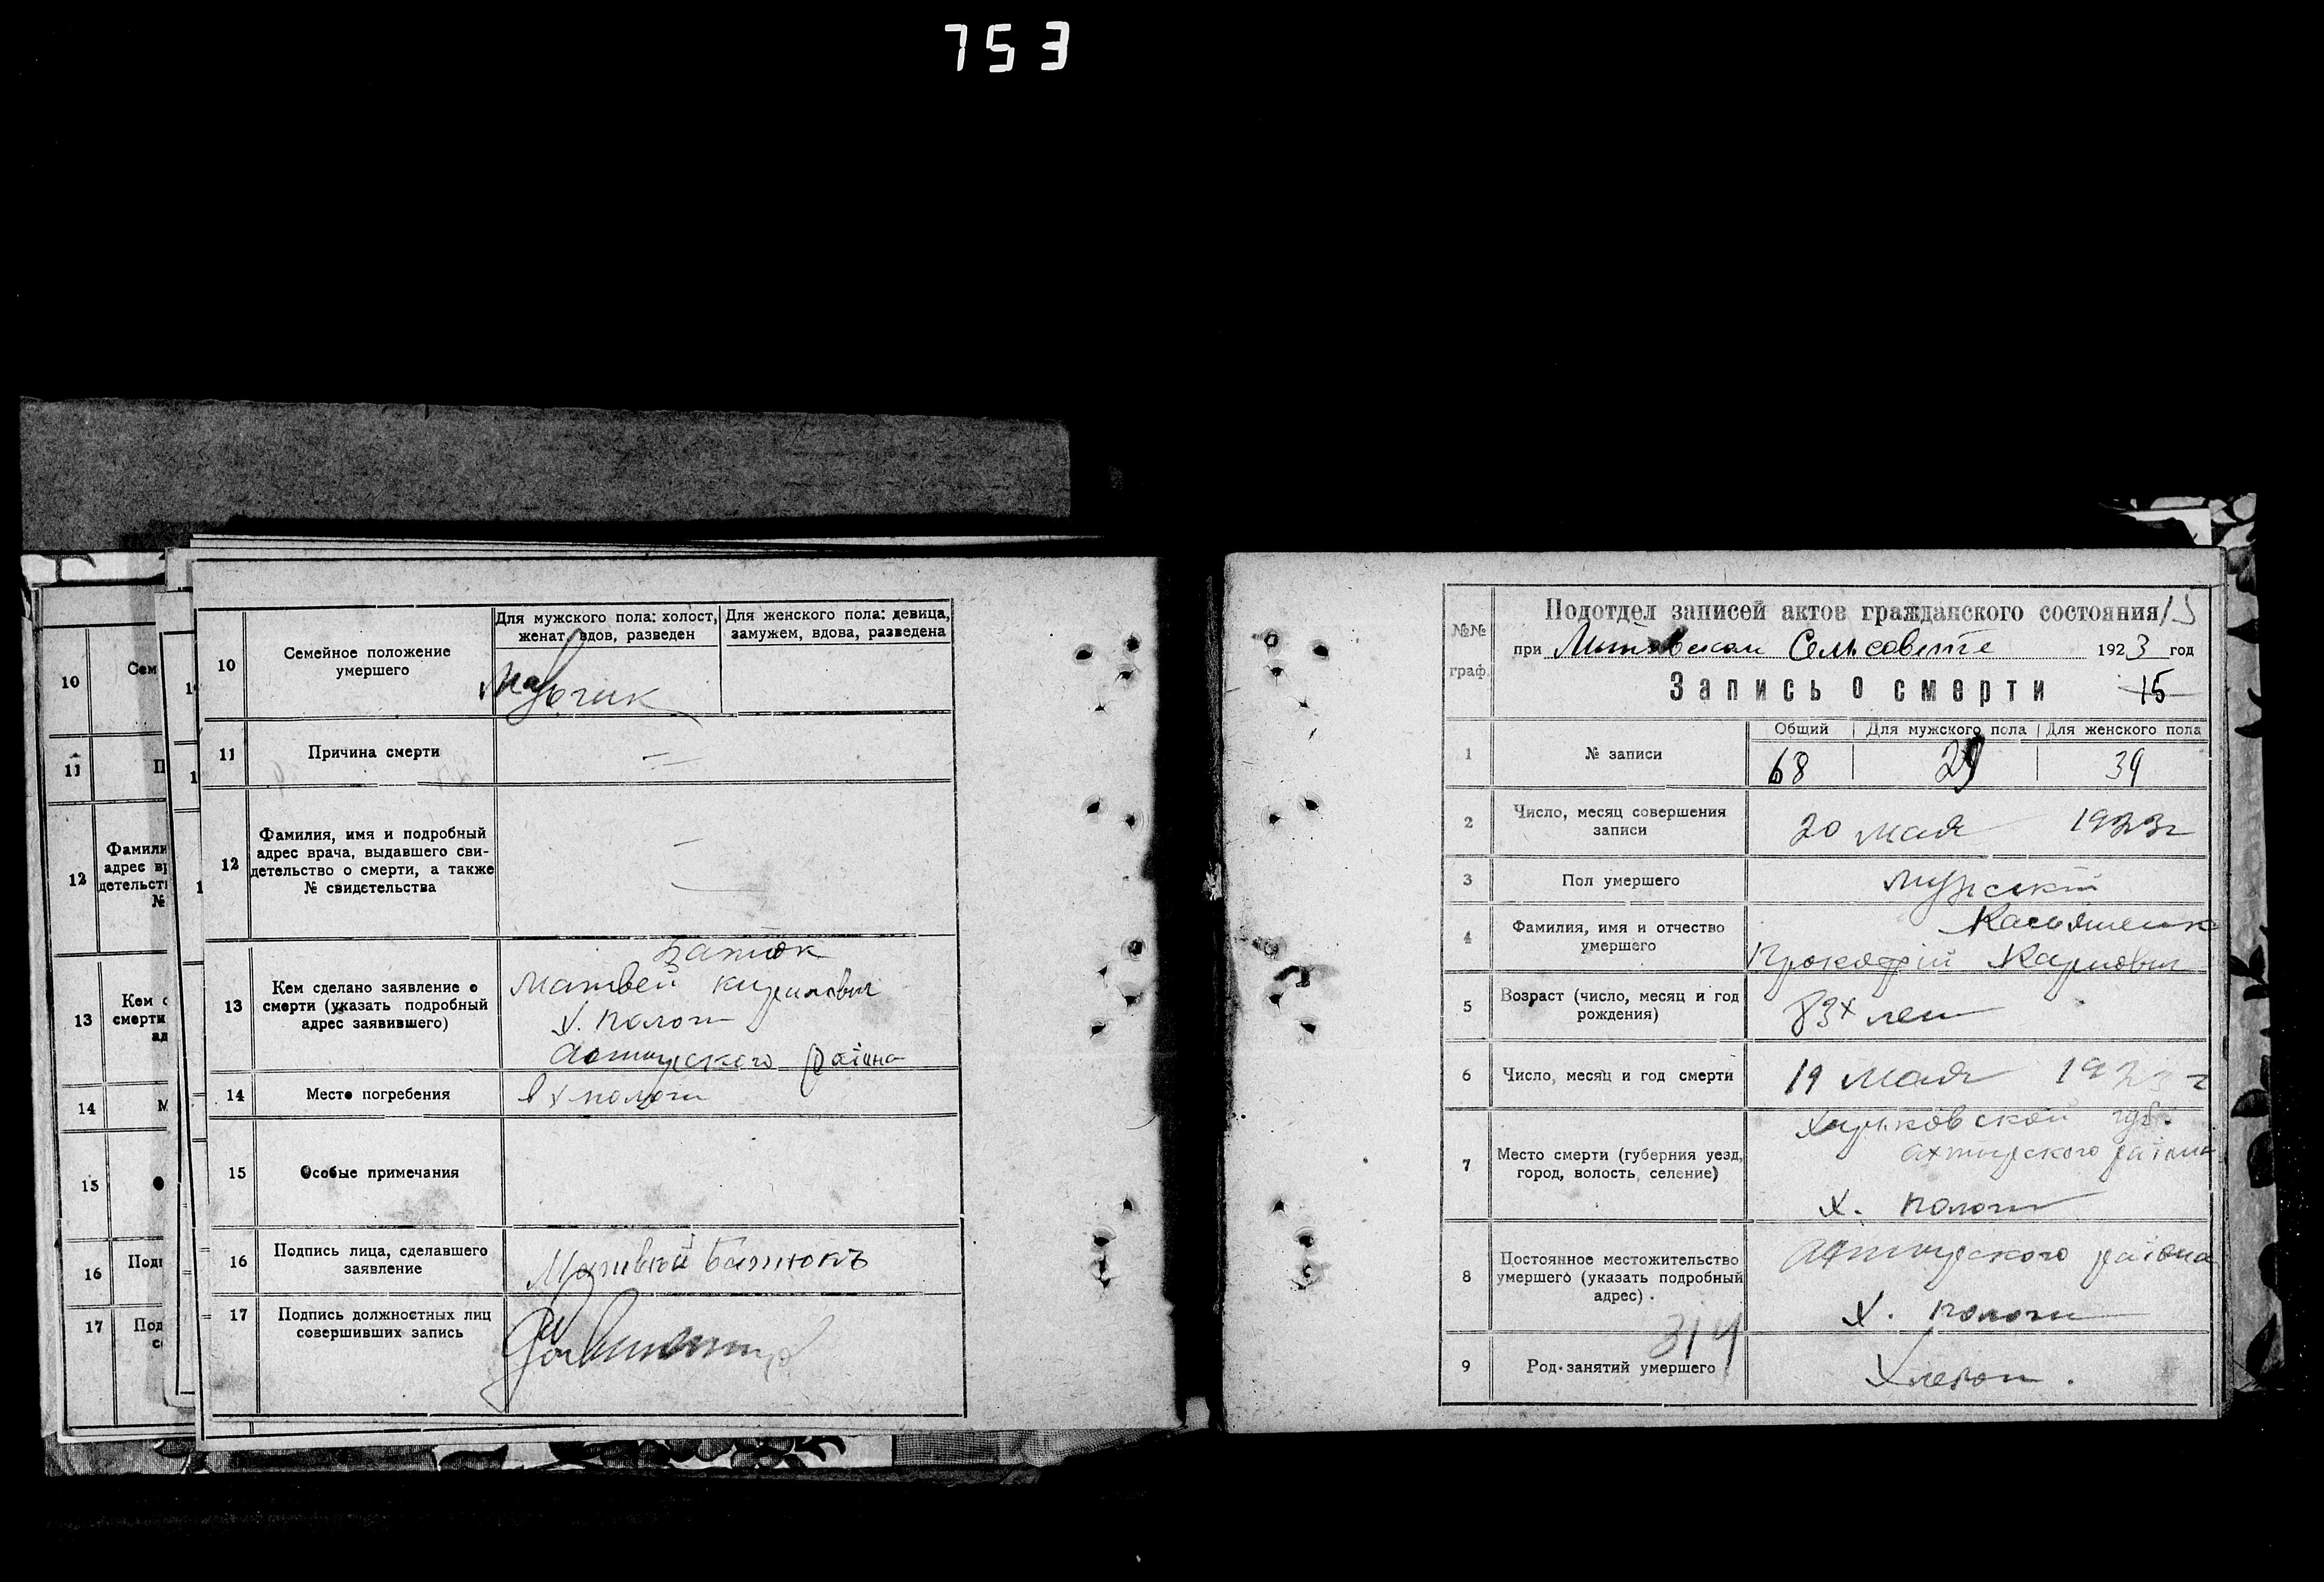 753
10
Семейное положение
умершего
Для мужского пола: холост,
женат, вдов, разведен
Для женского пола: девица,
замужем, вдова, разведена
11
Причина смерти
—
12
Фамилия, имя и подробный
адрес врача, выдавшего сви-
детельство о смерти, а также
№ свидетельства
—
13
Кем сделано заявление о
смерти (указать подробный
адрес заявившего)
Батюк
Матвей Кирилович
х. Пологи
Ахтирского раіона
14
Место погребения
в х Пологи
15
Особые примечания
16
Подпись лица, сделавшего
заявление
Матвѣй Батюкъ
17
Подпись должностных лиц
совершивших запись
10
Сем
11
П
12
Фамили
адрес вр
детельств
№
13
Кем с
смерти
ад
14
М
15
16
Подп
17
Под
с
№№
граф.
Подотдел записей актов гражданского состояния
при Сельсовете 1923 год
Запись о смерти 15
1
№ записи
Общий
Для мужского пола
Для женского пола
68
29
39
2
Число, месяц совершения
записи
20 мая 1923г
3
Пол умершего
мужскій
4
Фамилия, имя и отчество
умершего
Прокофій Карпович
5
Возраст (число, месяц и год
рождения)
83х лет
6
Число, месяц и год смерти
19 мая 1923 г
7
Место смерти (губерния уезд,
город, волость, селение)
Харьковской губ.
ахтирского раіона
х. Пологи
8
Постоянное местожительство
умершего (указать подробный
адрес)
Ахтирского раіона
х. Пологи
314
9
Род занятий умершего
Хлебоп.